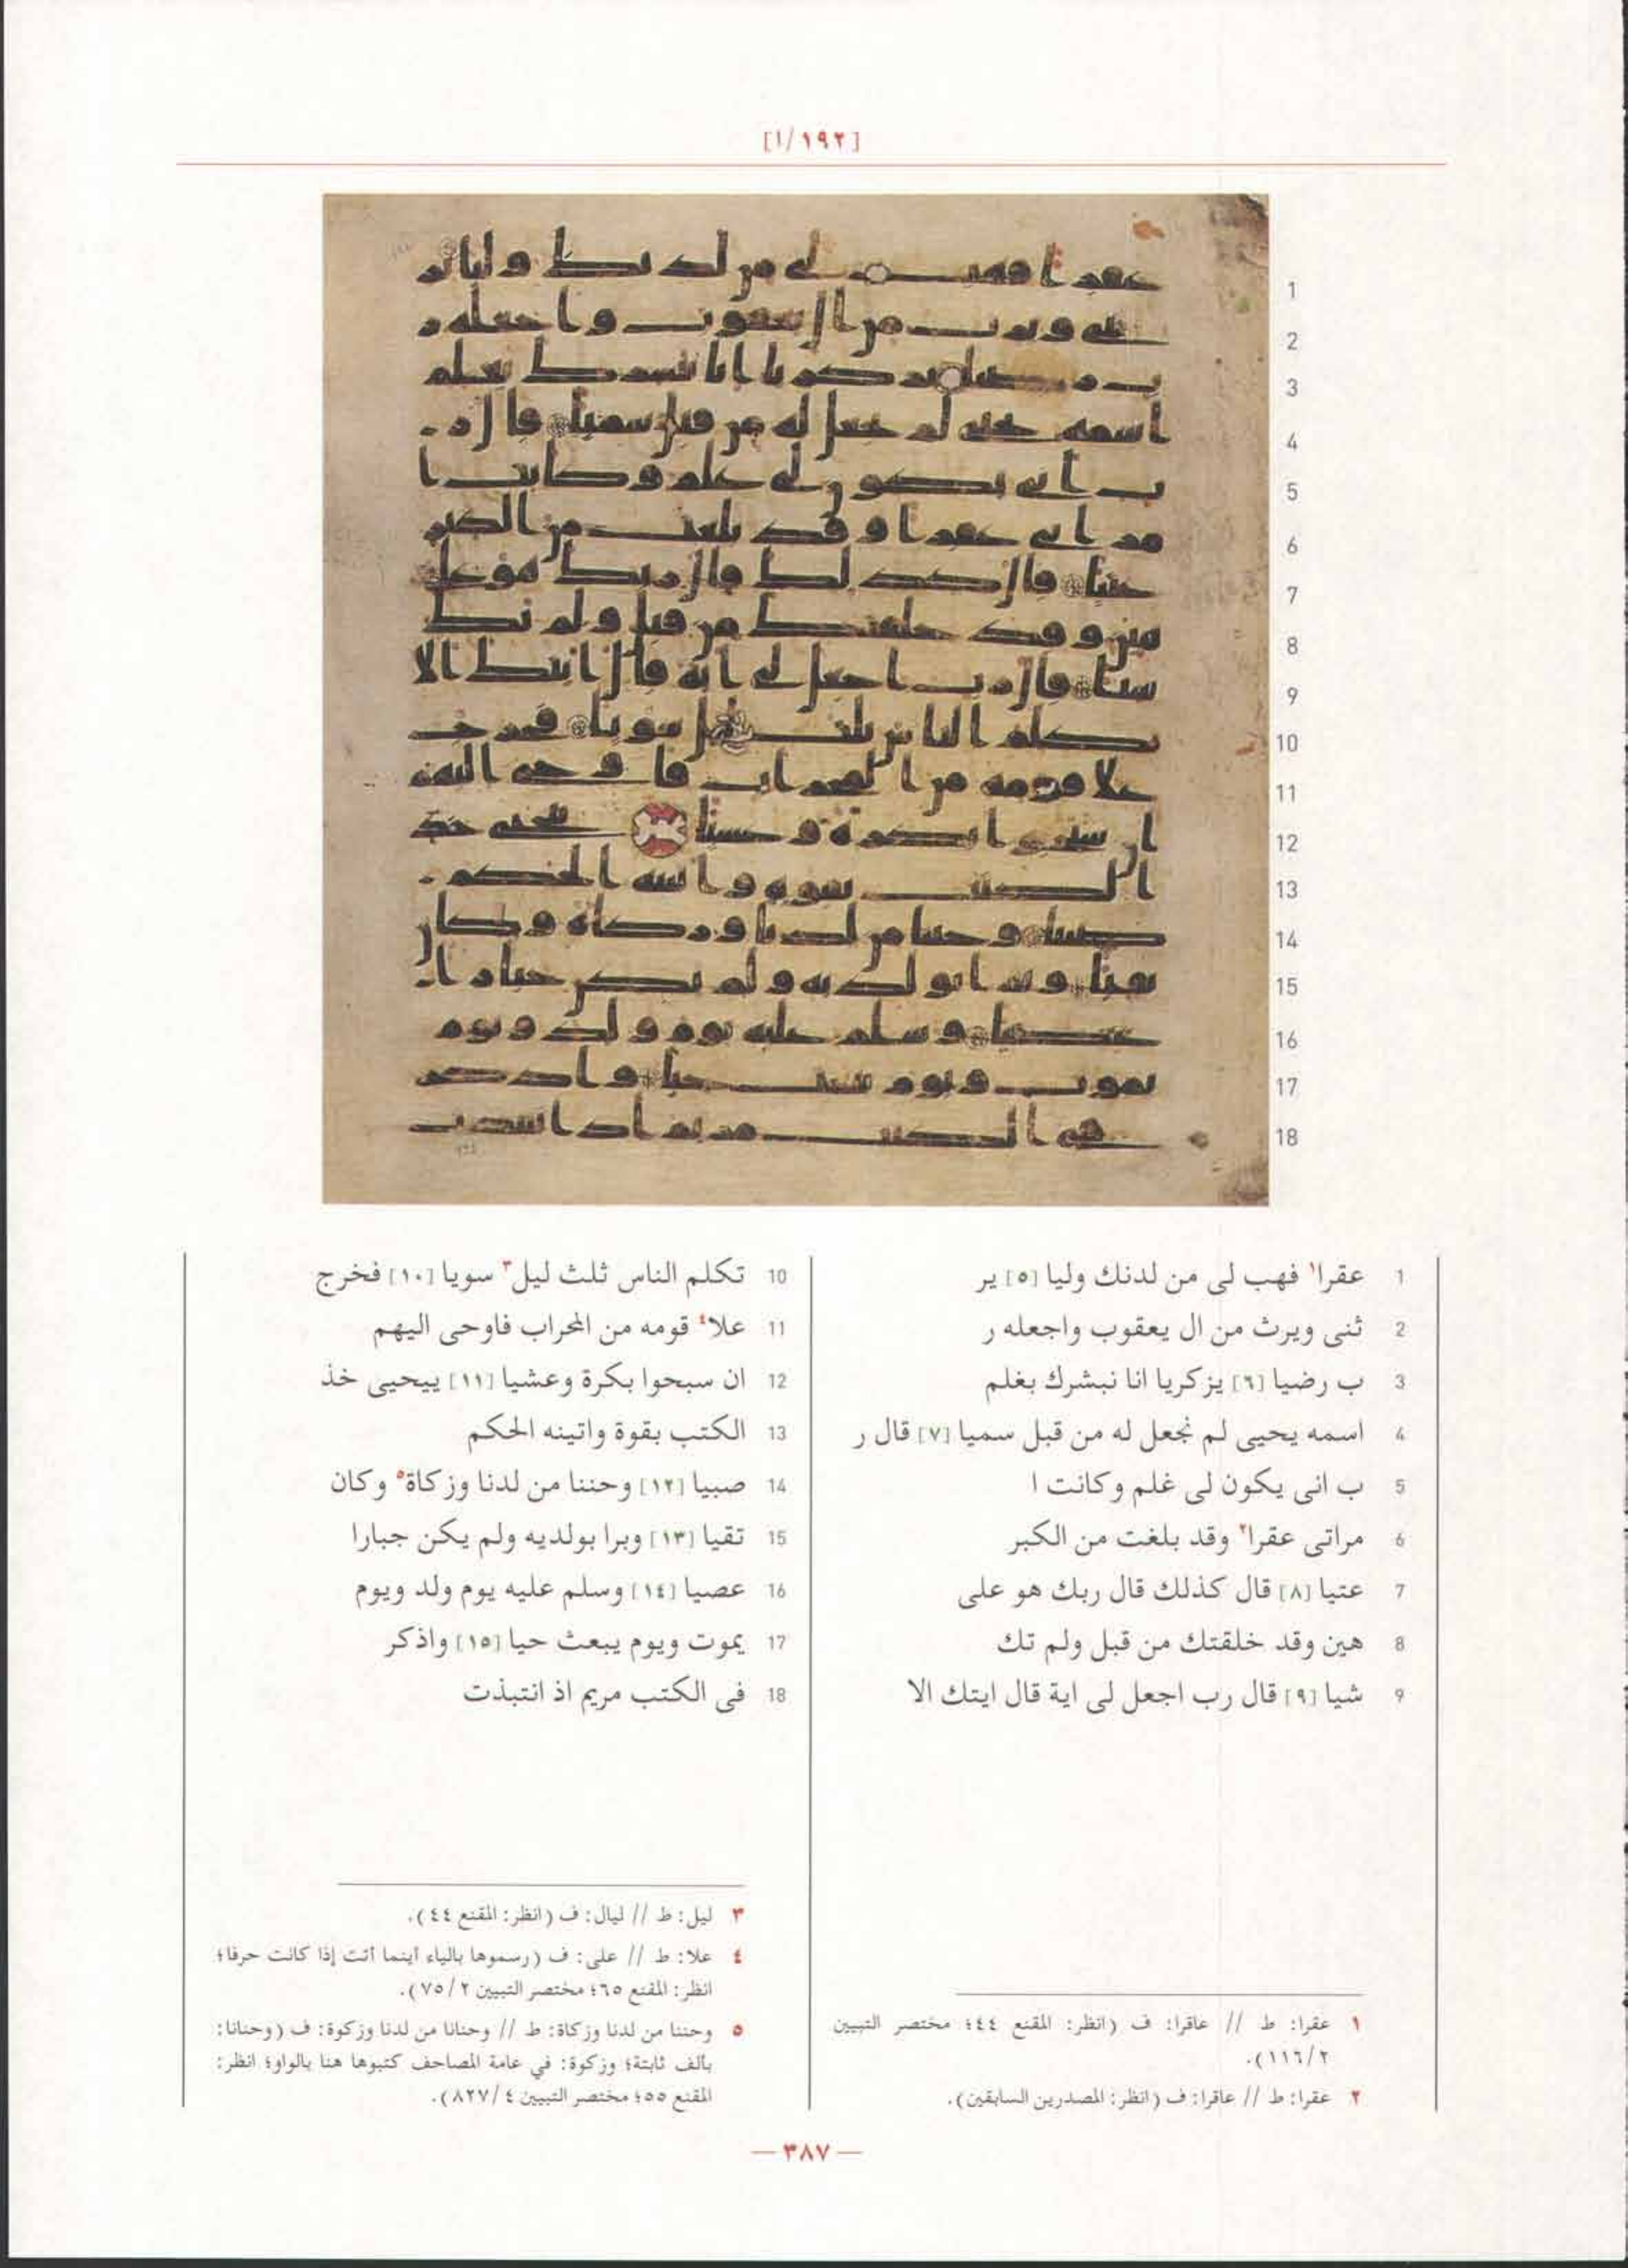 [١/١٩٢]
1 عقرا١ فهب لى من لدنك وليا [٥] ير
2 ثنى ويرث من ال يعقوب واجعله ر
3 ب رضيا [٦] يزكريا انا نبشرك بغلم
4 اسمه يحيى لم نجعل له من قبل سميا [٧] قال ر
5 ب انى يكون لى غلم وكانت ا
6 مراتى عقرا٢ وقد بلغت من الكبر
7 عتيا [٨] قال كذلك قال ربك هو على
8 هين وقد خلقتك من قبل ولم تك
9 شيا [٩] قال رب اجعل لى اية قال ايتك الا
10 تكلم الناس ثلث ليل٣ سويا [١٠] فخرج
11 علا٤ قومه من المحراب فاوحى اليهم
12 ان سبحوا بكرة وعشيا [١١] ييحيى خذ
13 الكتب بقوة واتينه الحكم
14 صبيا [١٢] وحننا من لدنا وزكاة٥ وكان
15 تقيا [١٣] وبرا بولديه ولم يكن جبارا
16 عصيا [١٤] وسلم عليه يوم ولد ويوم
17 يموت ويوم يبعث حيا [١٥] واذكر
18 فى الكتب مريم اذ انتبذت
١ عقرا: ط // عاقرا: ف (انظر: المقنع ٤٤؛ مختصر التبيين
٢/١١٦).
٢ عقرا: ط // عاقرا: ف (انظر: المصدرين السابقين).
٣ ليل: ط // ليال: ف (انظر: المقنع ٤٤).
٤ علا: ط // على: ف (رسموها بالياء أينما أتت إذا كانت حرفا؛
انظر: المقنع ٦٥؛ مختصر التبيين ٢/٧٥).
٥ وحننا من لدنا وزكاة: ط // وحنانا من لدنا وزكوة: ف (وحنانا:
بألف ثابتة؛ وزكوة: في عامة المصاحف كتبوها هنا بالواو؛ انظر:
المقنع ٥٥؛ مختصر التبيين ٤/٨٢٧).
— ٣٨٧ —